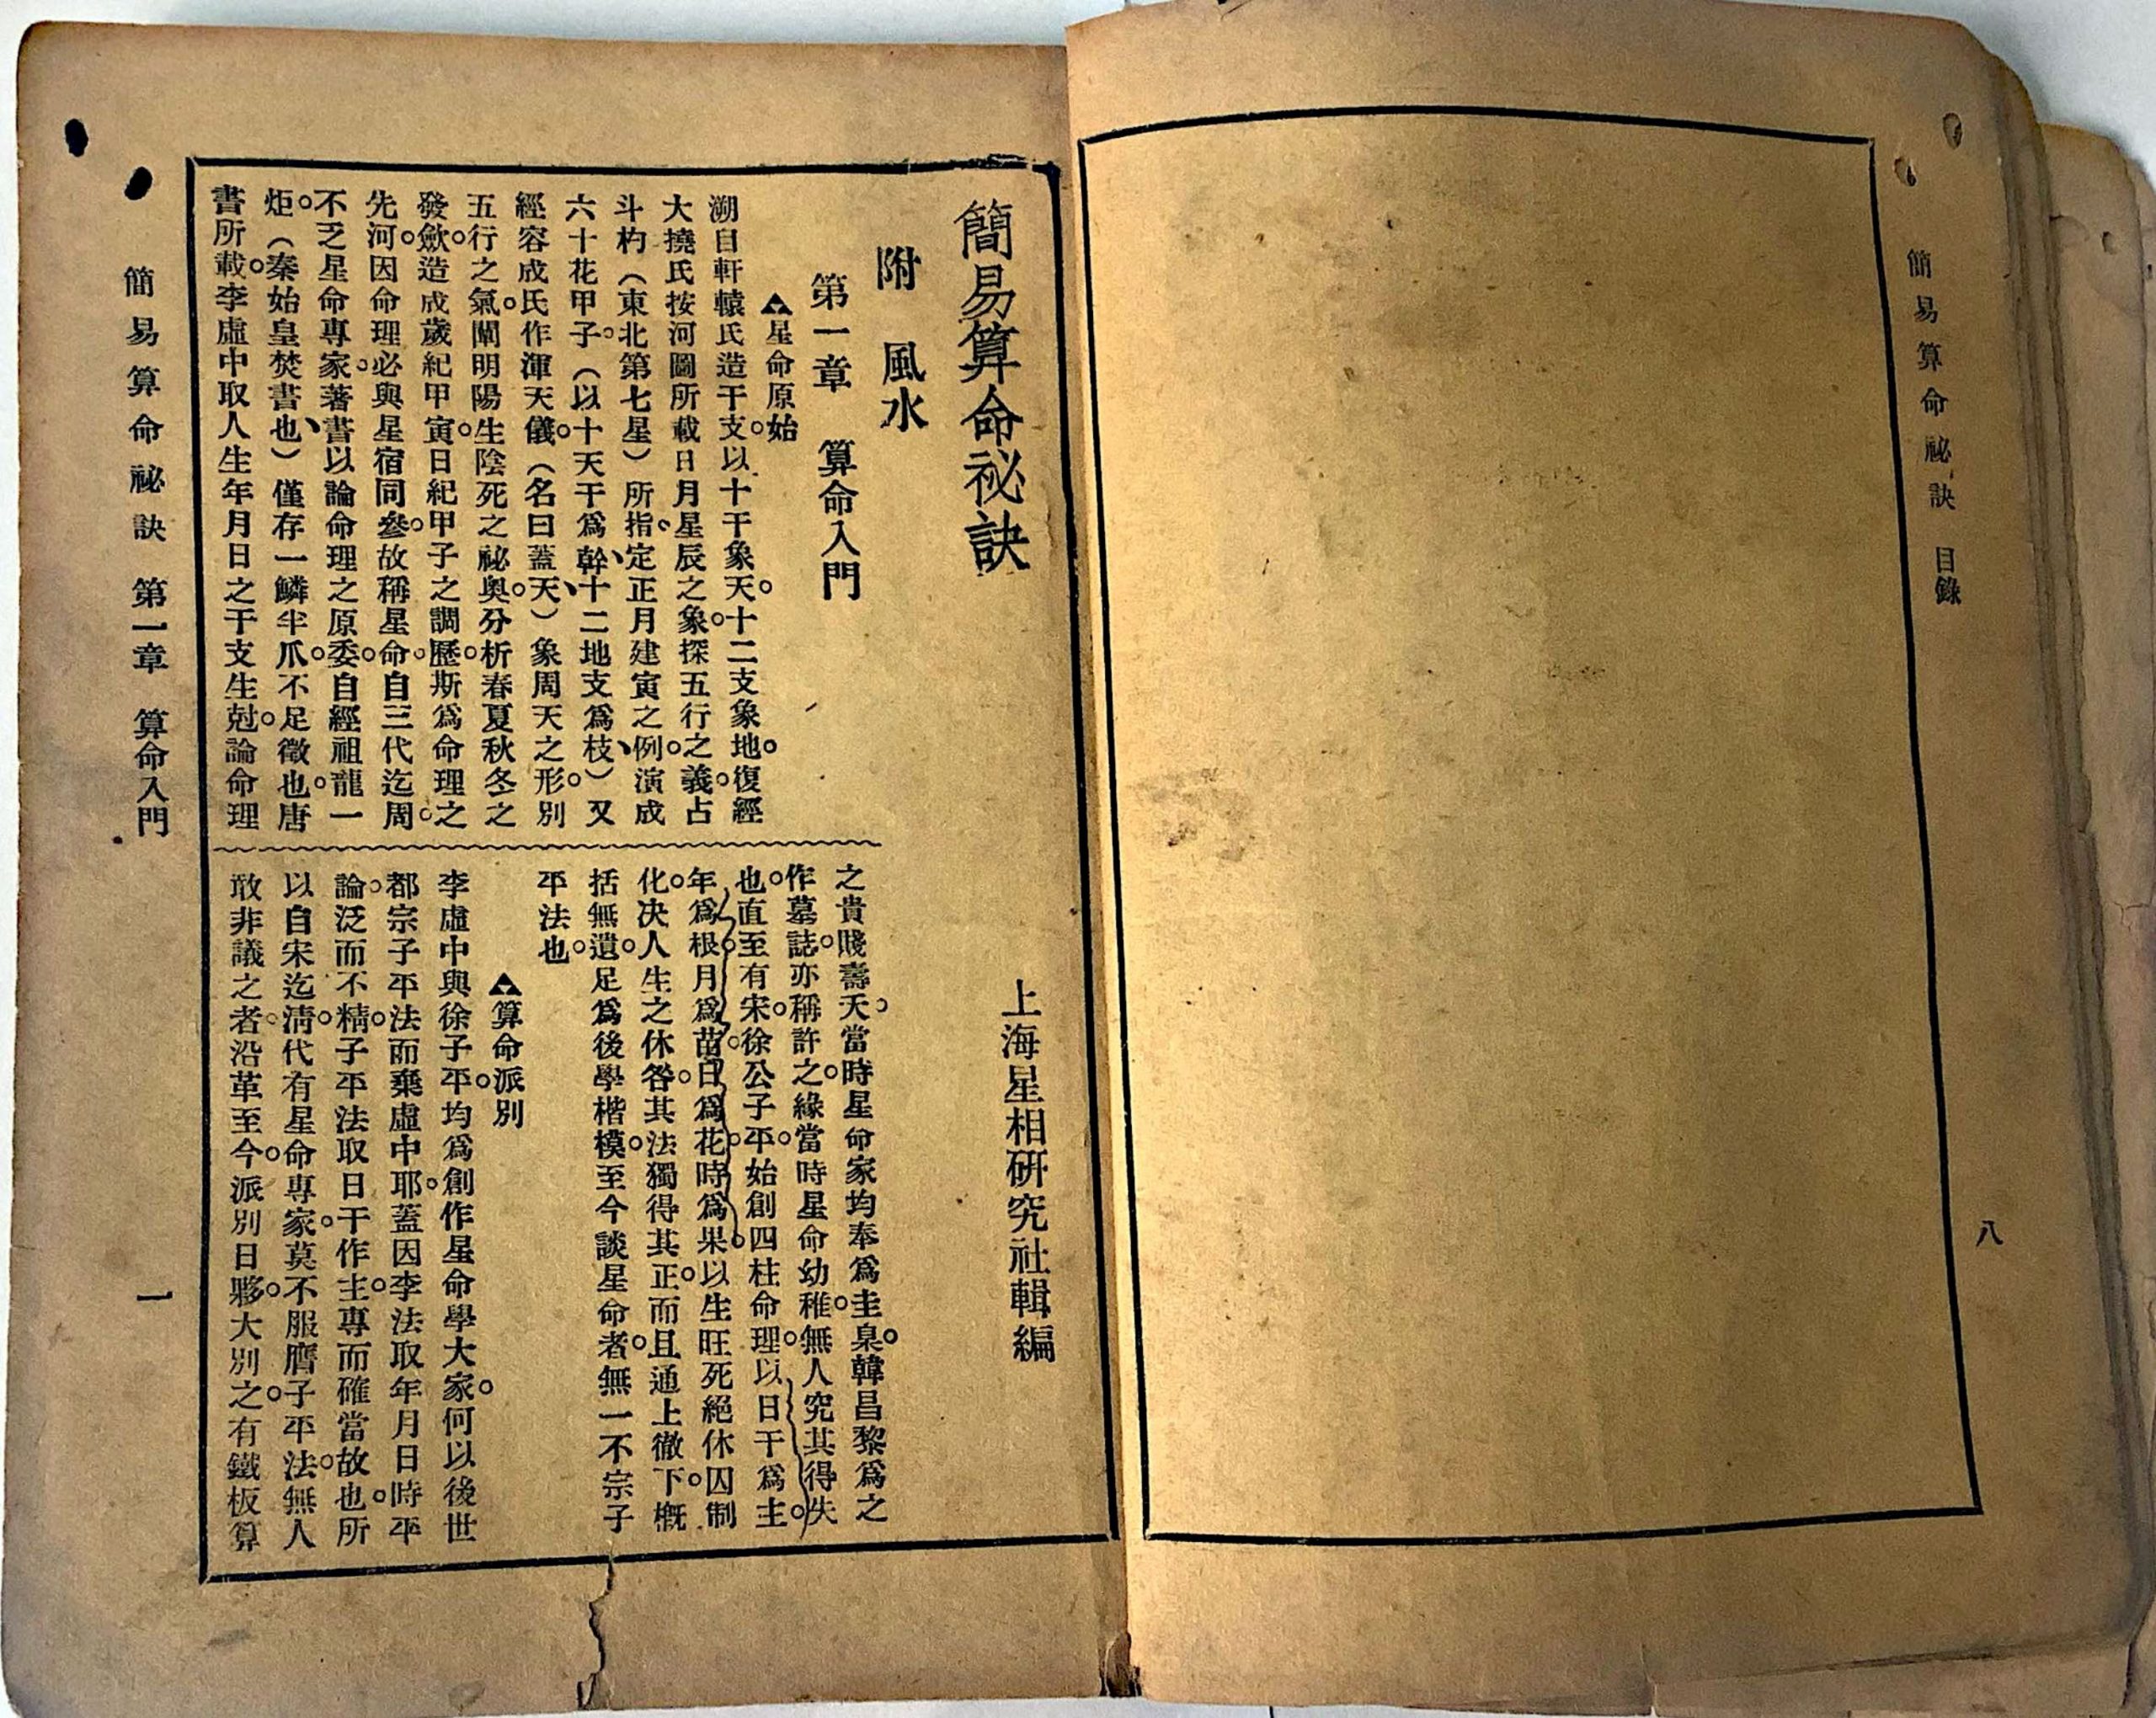 簡易算命祕訣 目錄
八
簡易算命祕訣
附 風水
上海星相研究社輯編
第一章 算命入門
▲星命原始
溯自軒轅氏造干支。以十干象天。十二支象地。復經
大撓氏按河圖所載日月星辰之象。探五行之義。占
斗杓（東北第七星）所指。定正月建寅之例。演成
六十花甲子。（以十天干爲幹、十二地支爲枝、）又
經容成氏作渾天儀。（名曰蓋天、）象周天之形。別
五行之氣。闡明陽生陰死之祕奧。分析春夏秋冬之
發歛。造成歲紀甲寅。日紀甲子之調歷。斯爲命理之
先河。因命理必與星宿同參。故稱星命。自三代迄周。
不乏星命專家。著書以論命理之原委。自經祖龍一
炬。（秦始皇焚書也、）僅存一鱗半爪。不足徵也。唐
書所載。李虛中取人生年月日之干支生尅。論命理
之貴賤壽夭。當時星命家均奉爲圭臬。韓昌黎爲之
作墓誌。亦稱許之。緣當時星命幼稚。無人究其得失
也。直至有宋。徐公子平。始創四柱命理。以日干爲主。
年爲根。月爲苗。日爲花。時爲果。以生旺死絕休囚制
化。决人生之休咎。其法獨得其正。而且通上徹下。概
括無遺。足爲後學楷模。至今談星命者。無一不宗子
平法也。
▲算命派別
李虛中與徐子平。均爲創作星命學大家。何以後世
都宗子平法而棄虛中耶。蓋因李法取年月日時平
論。泛而不精。子平法取日干作主。專而確當故也。所
以自宋迄淸。代有星命專家。莫不服膺子平法。無人
敢非議之者。沿革至今。派別日夥。大別之。有鐵板算
簡易算命祕訣 第一章 算命入門
一